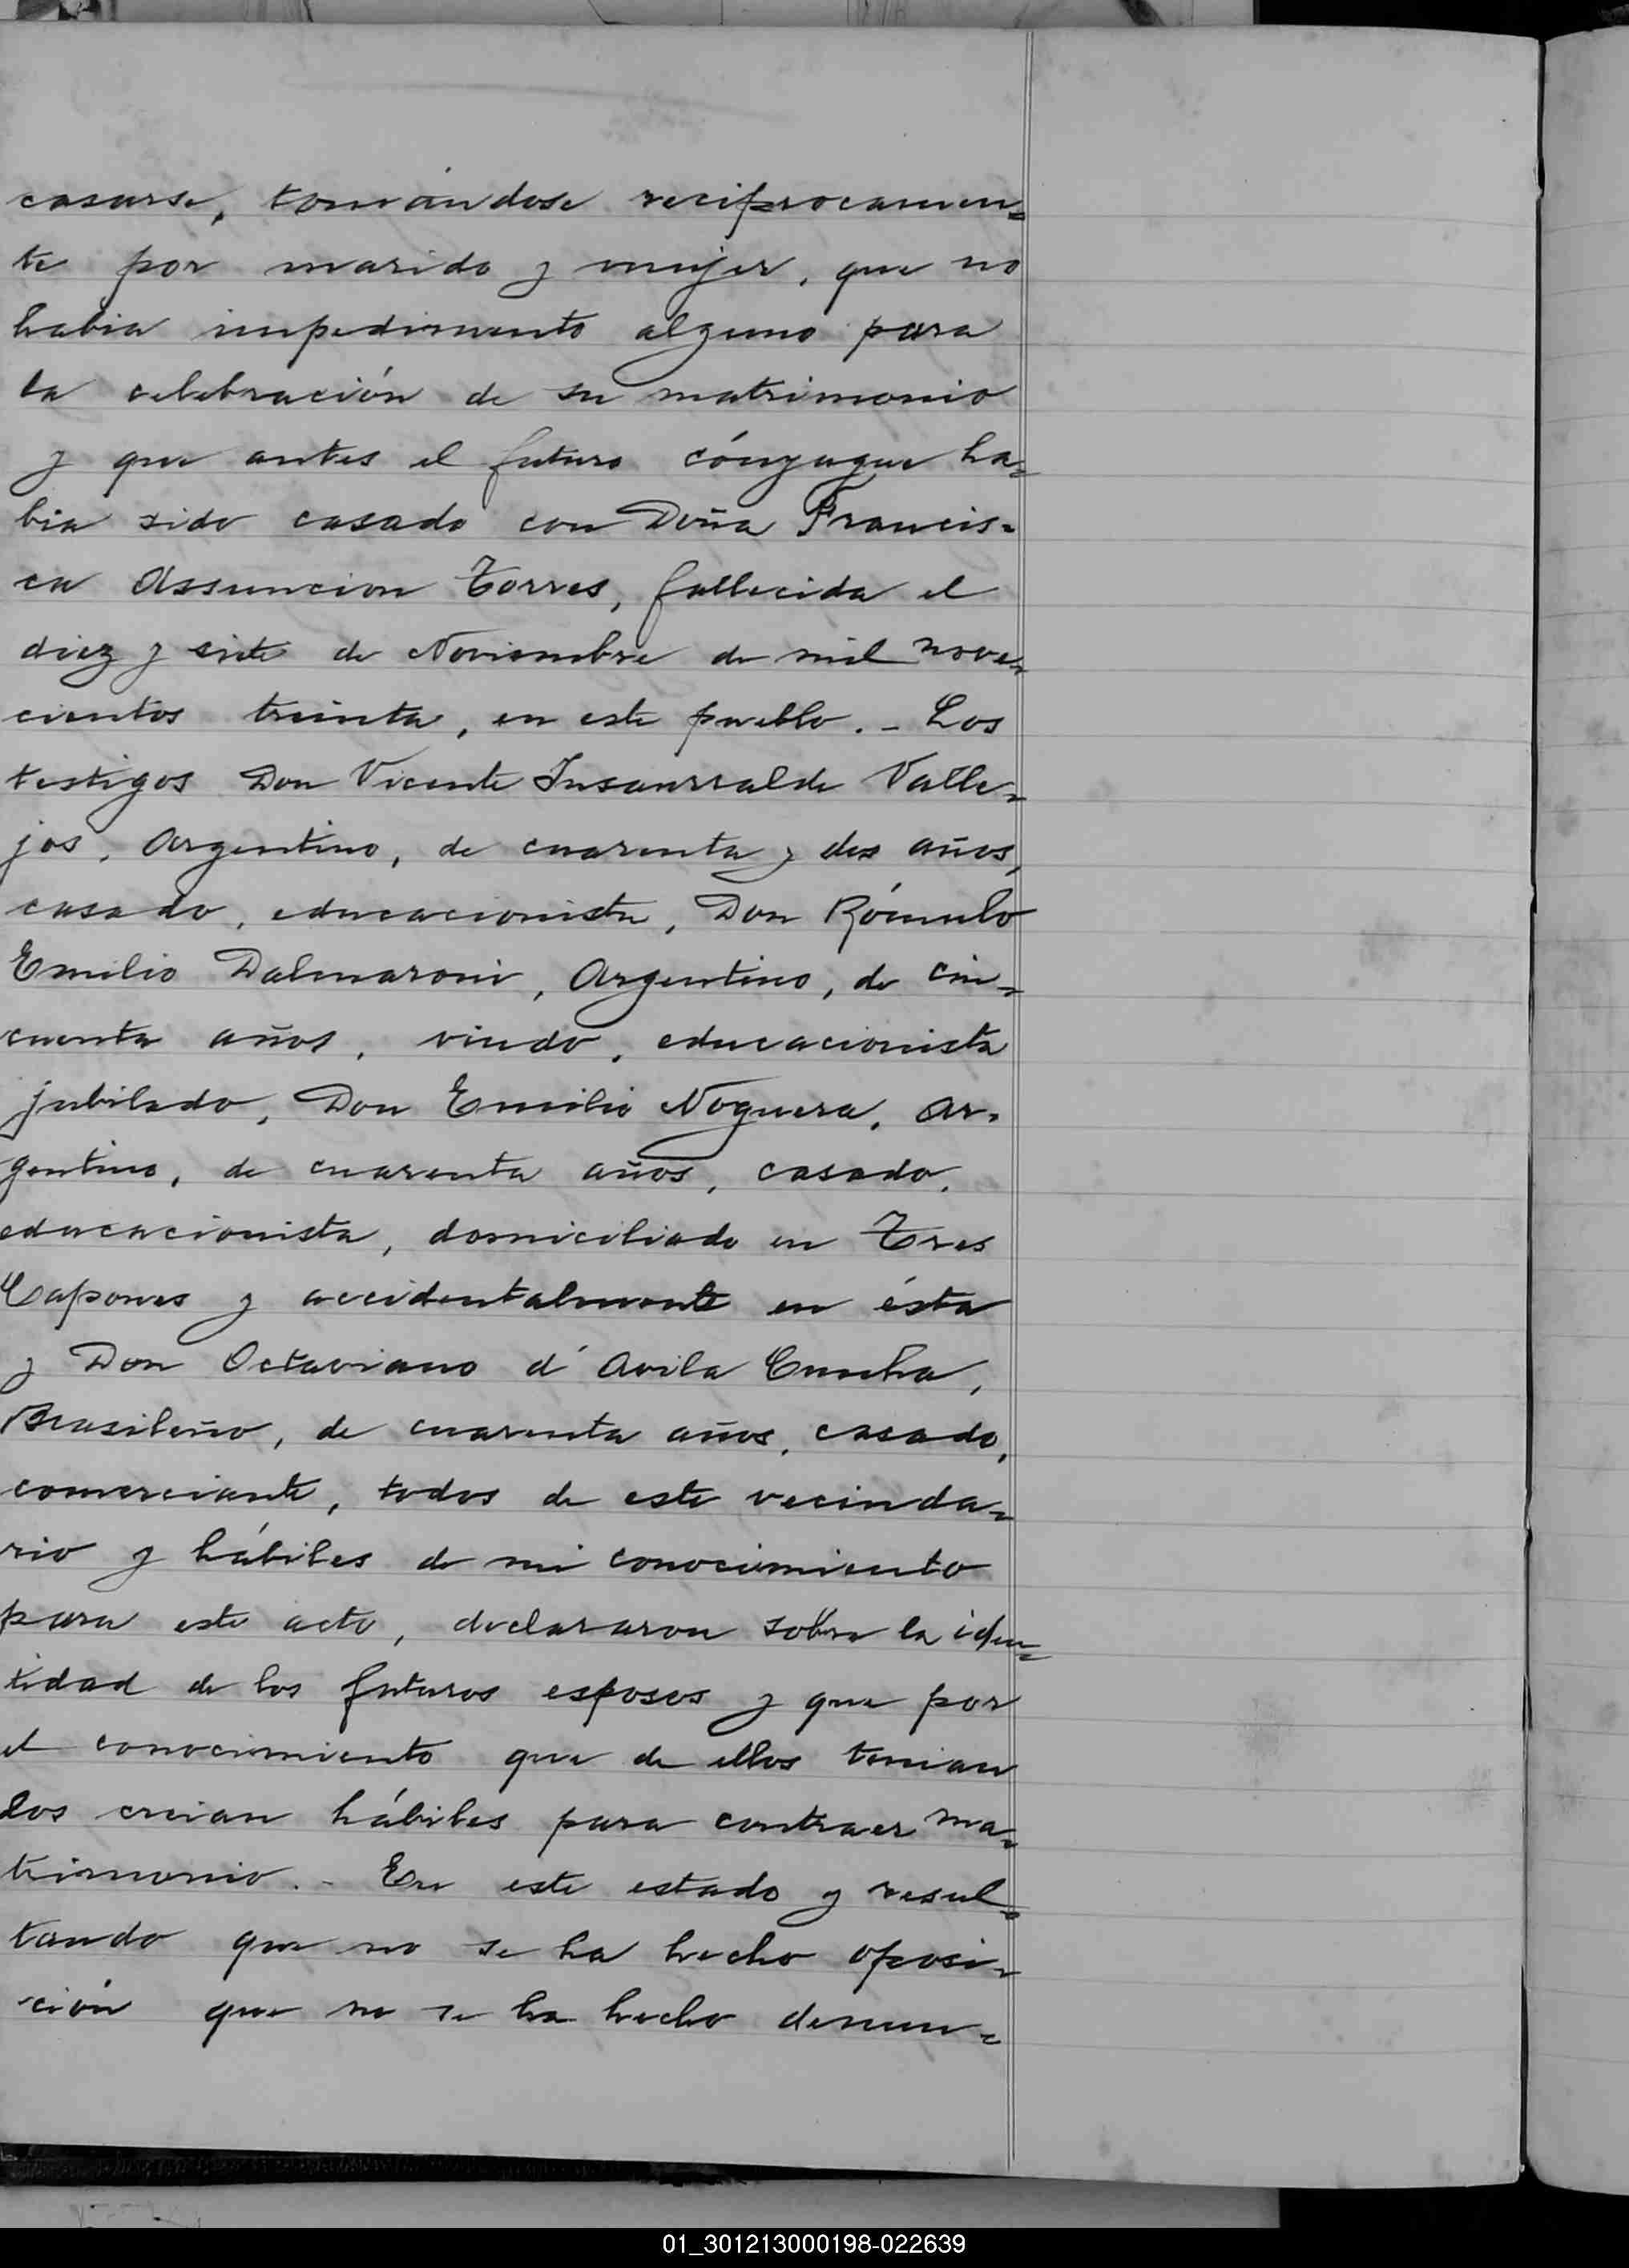 casarse, tomándose reciprocamen=
te por marido y mujer, que no
habia impedimento alguno para
la celebración de su matrimonio
y que antes el futuro cónyugue ha=
bia sido casado con Doña Francis=
ca Assuncion Torres, fallecida el
diez y siete de Noviembre de mil nove=
cientos treinta, en este pueblo. - Los
testigos Don Vicente Insaurralde Valle=
jos, Argentino, de cuarenta y dos años,
casado, educacionista, Don Rómulo
Emilio Dalmaroni, Argentino, de cin=
cuenta años, viudo, educacionista
jubilado, Don Emilio Noguera, Ar=
gentino, de cuarenta años, casado,
educacionista, domiciliado en Tres
Capones y accidentalmente en ésta
y Don Octaviano d' Avila Cunha,
Brasileño, de cuarenta años, casado,
comerciante, todos de este vecinda=
rio y hábiles de mi conocimiento
para este acto, declararon sobre la iden=
tidad de los futuros esposos y que por
el conocimiento que de ellos tenian
los creian hábiles para contraer ma=
trimonio. - En este estado y resul=
tando que no se ha hecho oposi=
ción que no se ha hecho denun=
01_301213000198-022639